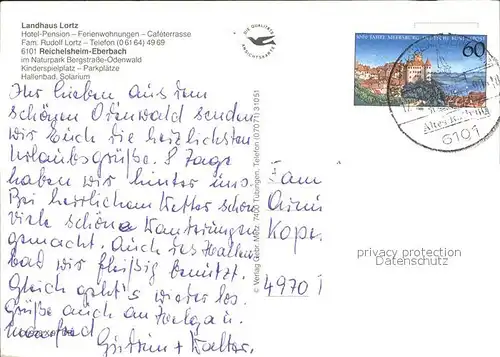 Landhaus Lortz
Hotel-Pension – Ferienwohnungen – Caféterrasse
Fam. Rudolf Lortz – Telefon (0 61 64) 49 69
6101 Reichelsheim-Eberbach
im Naturpark Bergstraße-Odenwald
Kinderspielplatz – Parkplätze
Hallenbad, Solarium
DIE QUALITÄTS ANSICHTSKARTE
1000 JAHRE MEERSBURG DEUTSCHE BUNDESPOST
60
6101
Ihr Lieben aus dem
schönen Odenwald senden
wir Euch die herzlichsten
Urlaubsgrüße. 8 Tage
haben wir hinter uns.
Bei herrlichem Wetter schon
viele schöne Wanderungen
gemacht. Auch das Hallen
bad wir fleißig benutzt.
Gleich geht's wieder los.
Grüße auch an Helga u.
Manfred
Gudrun + Walter.
© Verlag Gebr. Metz, 7400 Tübingen, Telefon (07071) 31051
Fam
Armi
Kope
4970
privacy protection
Datenschutz